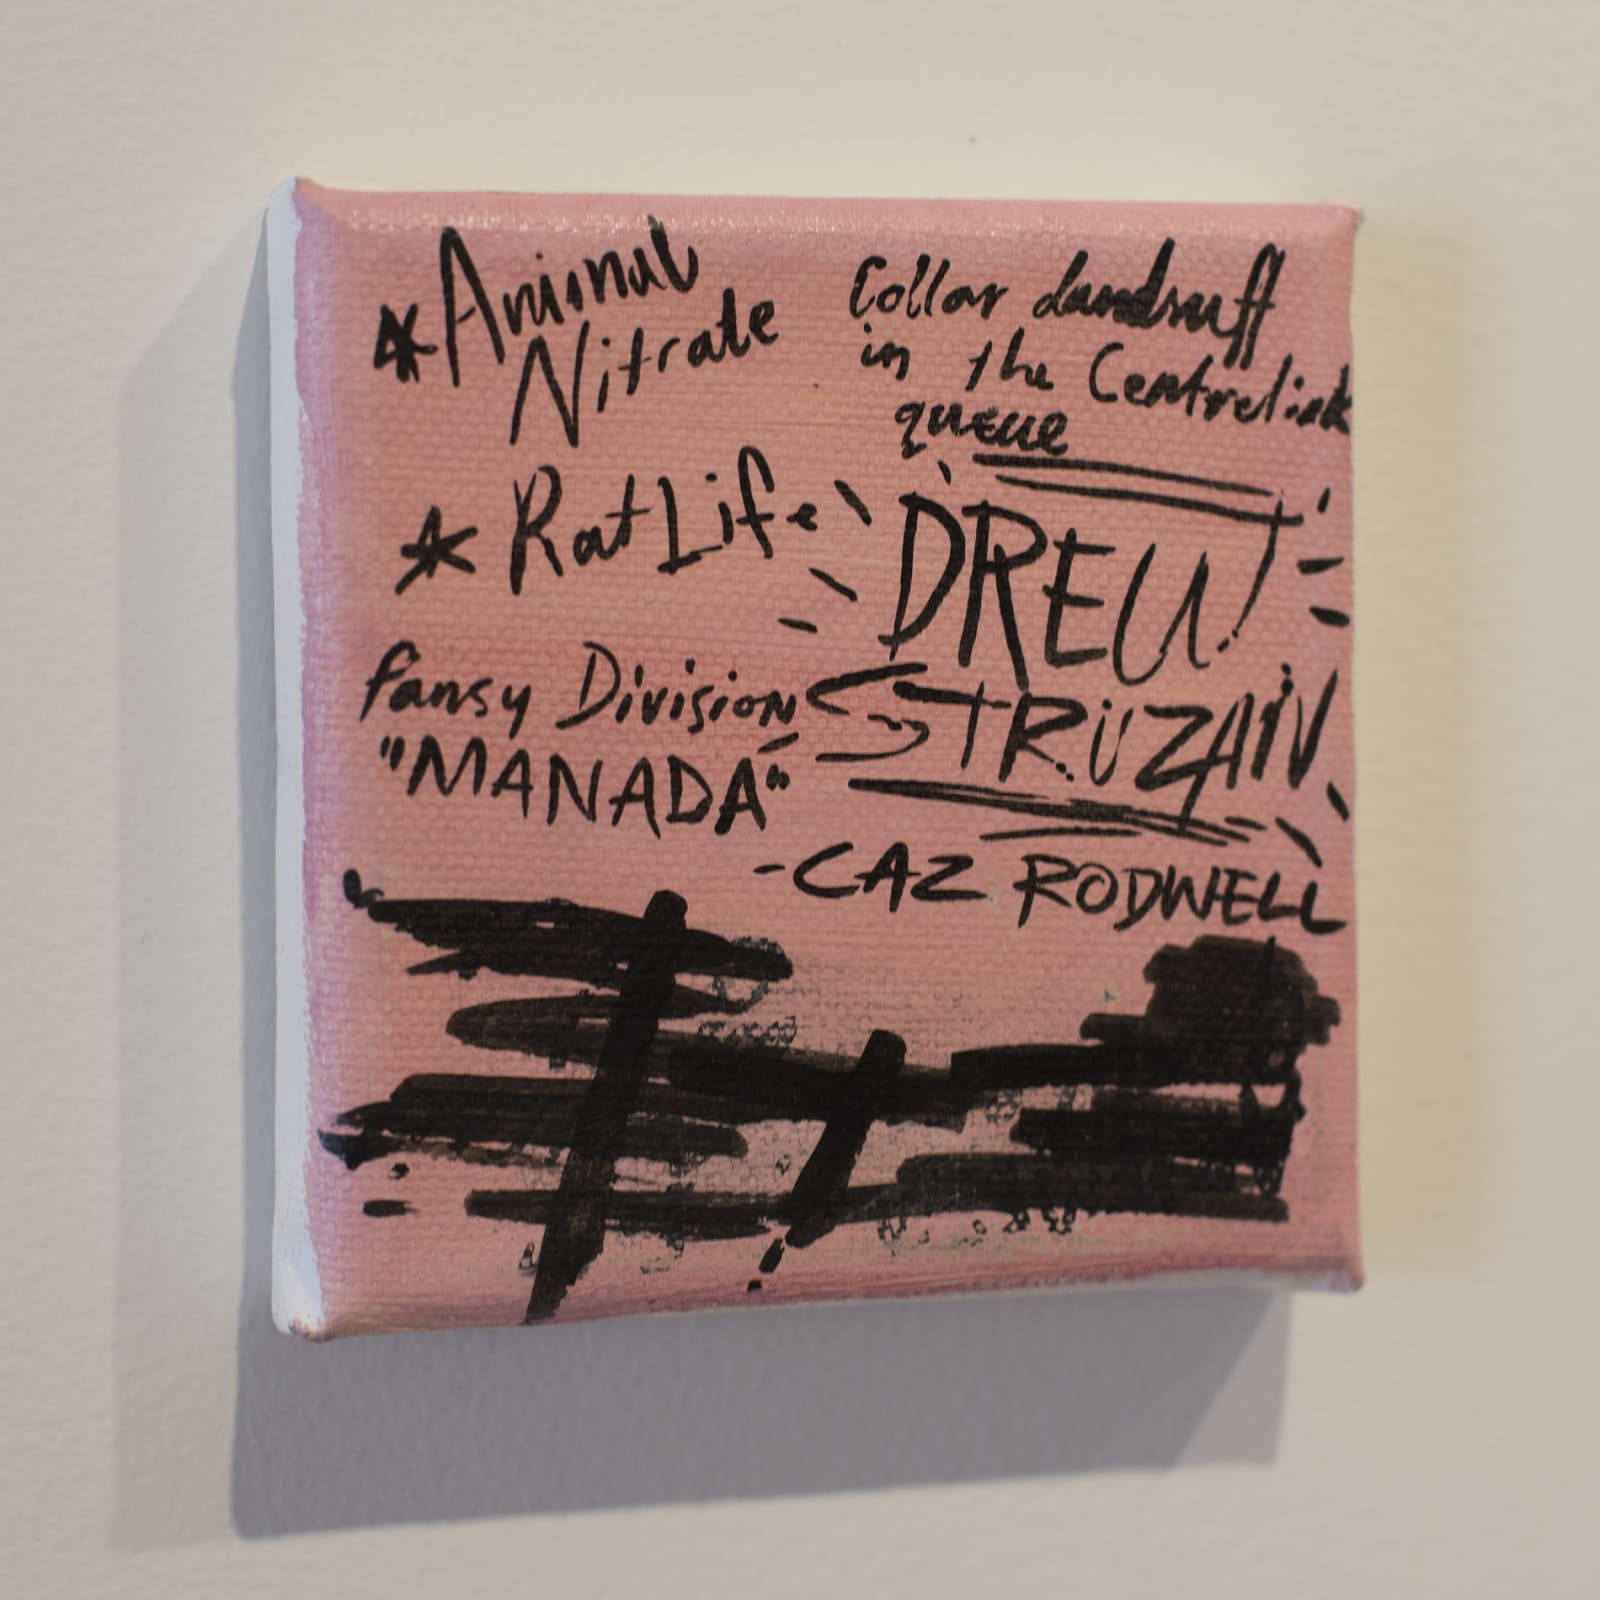 *Animal
Nitrate
* Rat Life
Pansy Division
"MANADA"
Collar dandruff
in the Centrelink
queue
DREW
STRUZAN
-CAZ RODWELL